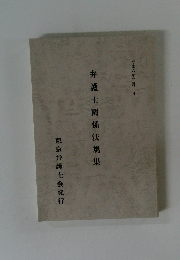 弁護士関係法規集
東京弁護士会発行